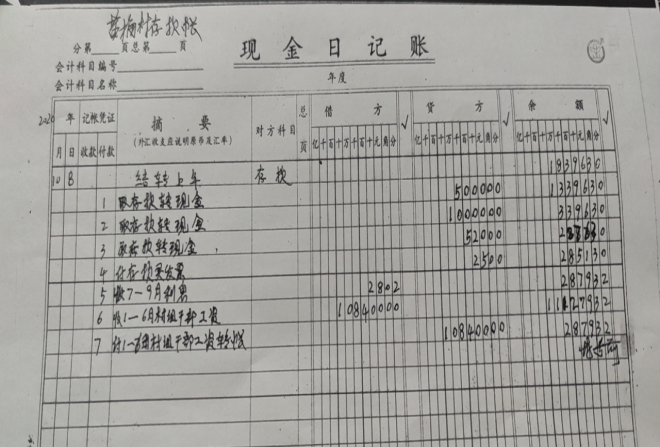 村存款帐
分第____页总第____页
现金日记账
会计科目编号
会计科目名称
年度
2020年 记帐凭证 摘要 对方科目 总页 借方 √ 贷方 √ 余额 √
(外汇收支应说明原币及汇率)
月 日 收款 付款 亿千百十万千百十元角分 亿千百十万千百十元角分 亿千百十万千百十元角分
10 8 结转上年 存款 1839630
1 取存款转现金 500000 1339630
2 取存款转现金 1000000 339630
3 取存款转现金 52000 287630
4 付存款 2500 285130
5 收7-9月利息 2802 287932
6 收1-6月村组干部工资 10840000 11127932
7 付1-6月村组干部工资转帐 10840000 287932